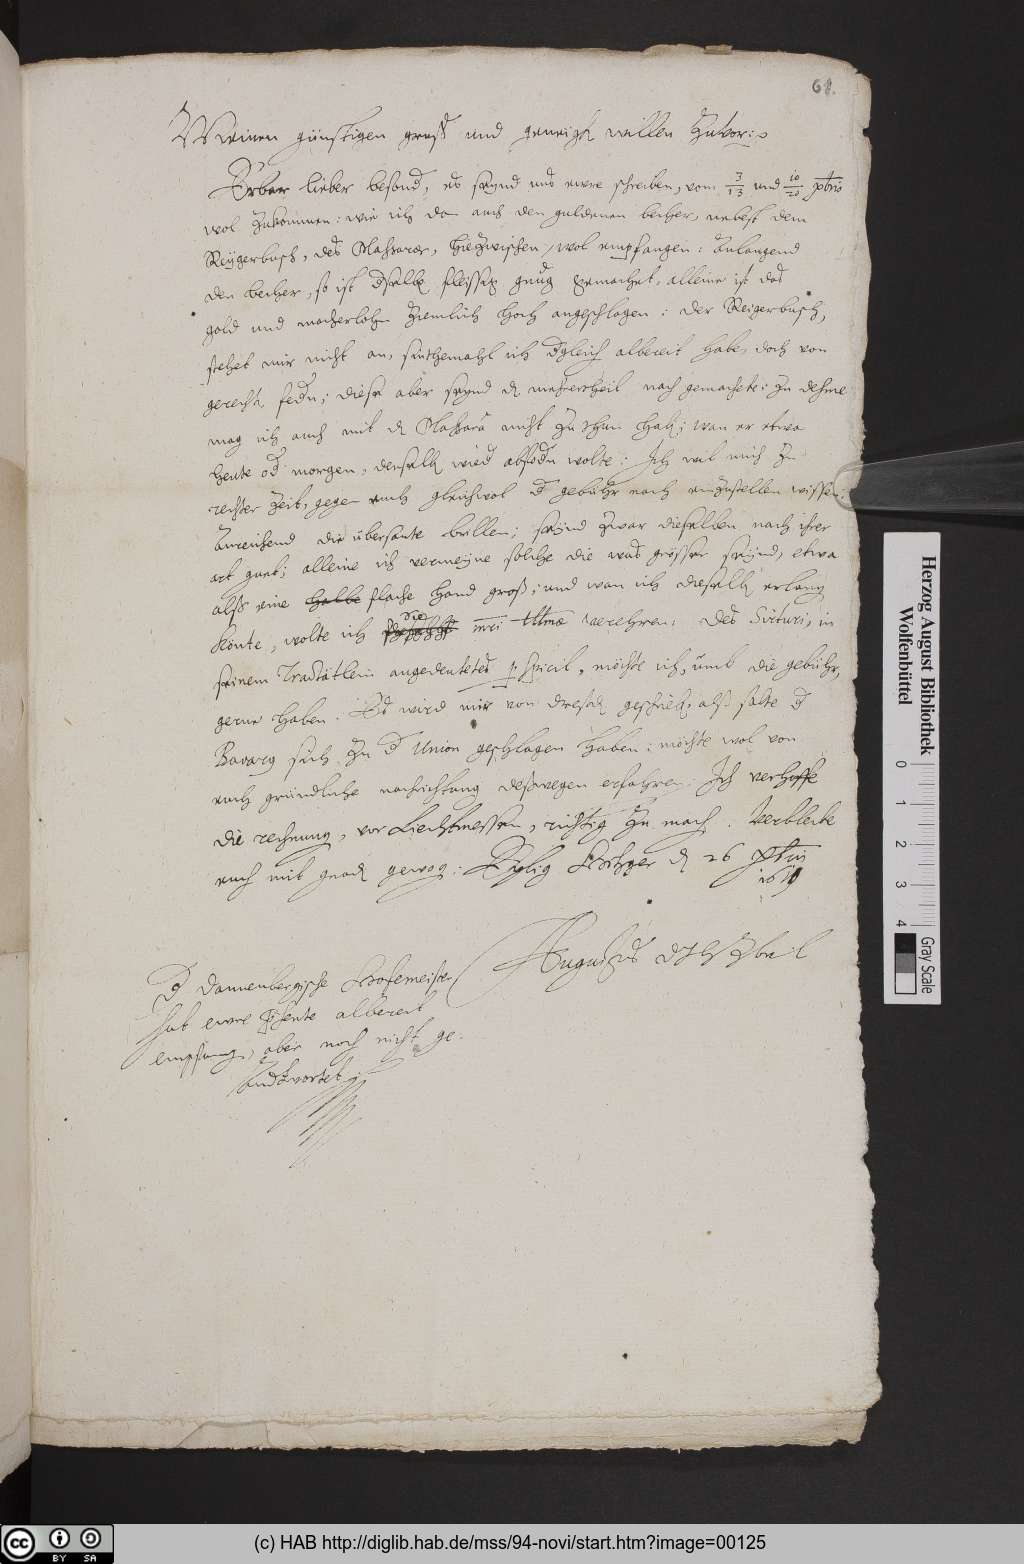 61.
Meinen günstigen gruß und geneigt willen zuvor:
Erbar lieber besond, es seynd uns ewre schreiben, vom 3/13 und 10/20 Xbris
wol zukommen: wie ich dan auch den guldenen becher, nebest dem
Reygerbusch, des Massarae, hiezwischen, wol empfangen: Anlangend
den becher, so ist dselb fleissig gnug gemachet, alleine ist das
gold und macherlohn ziemlich hoch angeschlagen: der Reigerbusch,
stehet mir nicht an, sinthemahl ich dgleich albereit habe, doch von
gerecht fedn; diese aber seynd d mehrertheil nach gemachete: zu dehme
mag ich auch mit d Massara nicht zu thun hab; wan er etwa
heute od morgen, denselb wied abfodn wolte: Ich wil mich zu
rechter zeit, gegen euch gleichwol d gebühr nach einzustellen wissen:
Anreichend die übersante brillen; seynd zwar dieselben nach ihrer
art guet; alleine ich vermeyne solche die was grösser seynd, etwa
alß eine halbe flache hand groß; und wan ich dieselb erlang
könte, wolte ich die mri Ittmae verehren: Des Sirturi, in
seinem Tractätlein angedeutetes pspicil, möchte ich, umb die gebühr,
gerne haben. Es wird mir von dresd geschrieb, alß solte d
Bavarg sich zu d Union geschlagen haben: möchte wol von
euch gründliche nachrichtung deßwegen erfahren: Ich verhoffe
die rechnung, vor Liechtmessen, richtig zu mach. Verbleibe
euch mit gnad gewog: Eylig Hitzger d 26 Xbris
1619
Augustus dJ HzBraL
D dannenbergische Hofemeister
hat ewre Pänte albereit
empfang, aber noch nicht ge.
andtwortet
Herzog August Bibliothek
Wolfenbüttel
0 1 2 3 4
Gray Scale
CC BY SA
(c) HAB http://diglib.hab.de/mss/94-novi/start.htm?image=00125